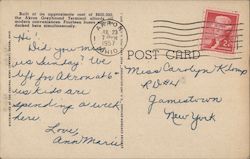 Built at its approximate cost of
the Akron Greyhound Terminal affords
modern conveniences. Fourteen buses
docked here simultaneously.
1957
POST CARD
Hi!
Did you miss
us Sunday? We
left for Akron at 6
us kids are
spending a week
here.
Love,
Ann Marie
Miss Carolyn
R.D.#1
Jamestown
New York